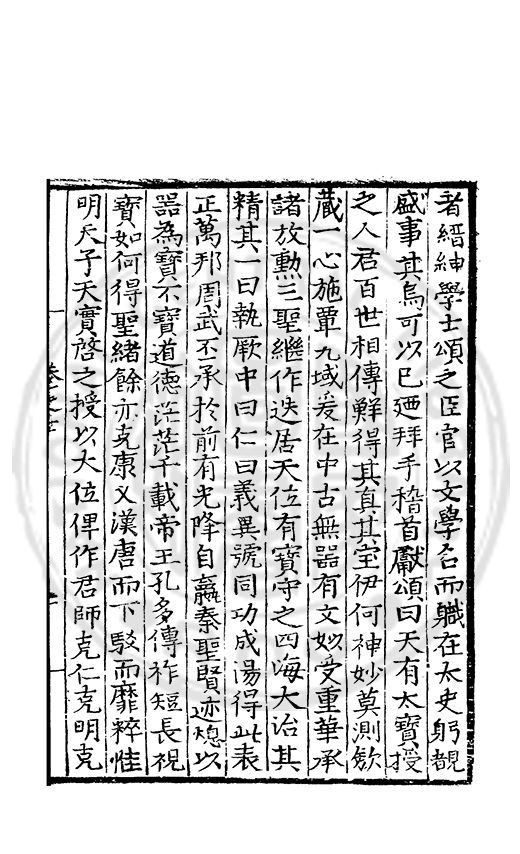 者縉紳學士頌之臣官以文學名而職在太史躬覩
盛事其烏可以已廼拜手稽首獻頌曰天有太寶授
之人君百世相傳鮮得其真其宝伊何神妙莫測歛
藏一心施覃九域爰在中古無器有文妙受重華承
諸放勳三聖繼作迭居天位有寶守之四海大治其
精其一曰執厥中曰仁曰義異號同功成湯得此表
正萬邦周武丕承於前有光降自嬴秦聖賢迹熄以
器為寶不寶道德茫茫千載帝王孔多傳祚短長視
寶如何得聖緒餘亦克康乂漢唐而下駁而靡粹惟
明天子天實啓之授以大位俾作君師克仁克明克